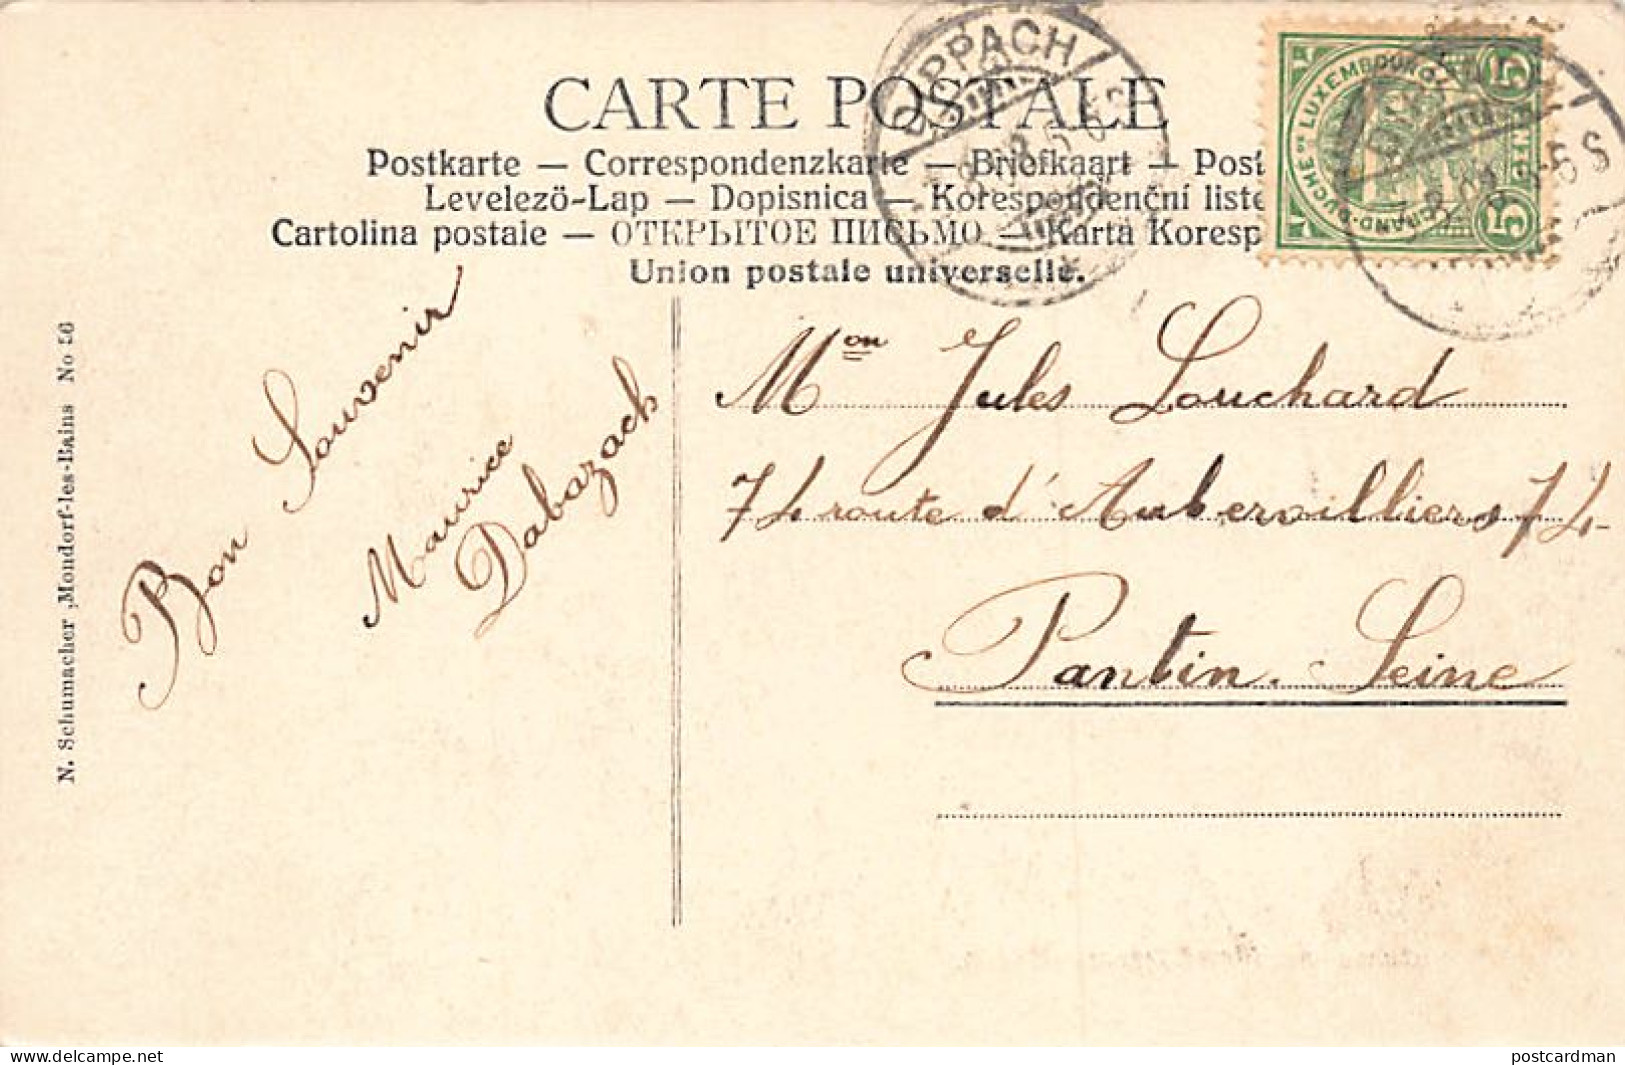 CARTE POSTALE
Postkarte — Correspondenzkarte — Briefkaart — Post
Levelezö-Lap — Dopisnica — Korespondenční liste
Cartolina postale — ОТКРЫТОЕ ПИСЬМО — Karta Koresp
Union postale universelle.
DIPPACH
GRAND-DUCHÉ DE LUXEMBOURG
5 5
N. Schumacher, Mondorf-les-Bains No 56
Bon Souvenir
Maurice
Dabazach
Mon Jules Louchard
74 route d'Aubervilliers 74
Pantin. Seine
www.delcampe.net
postcardman